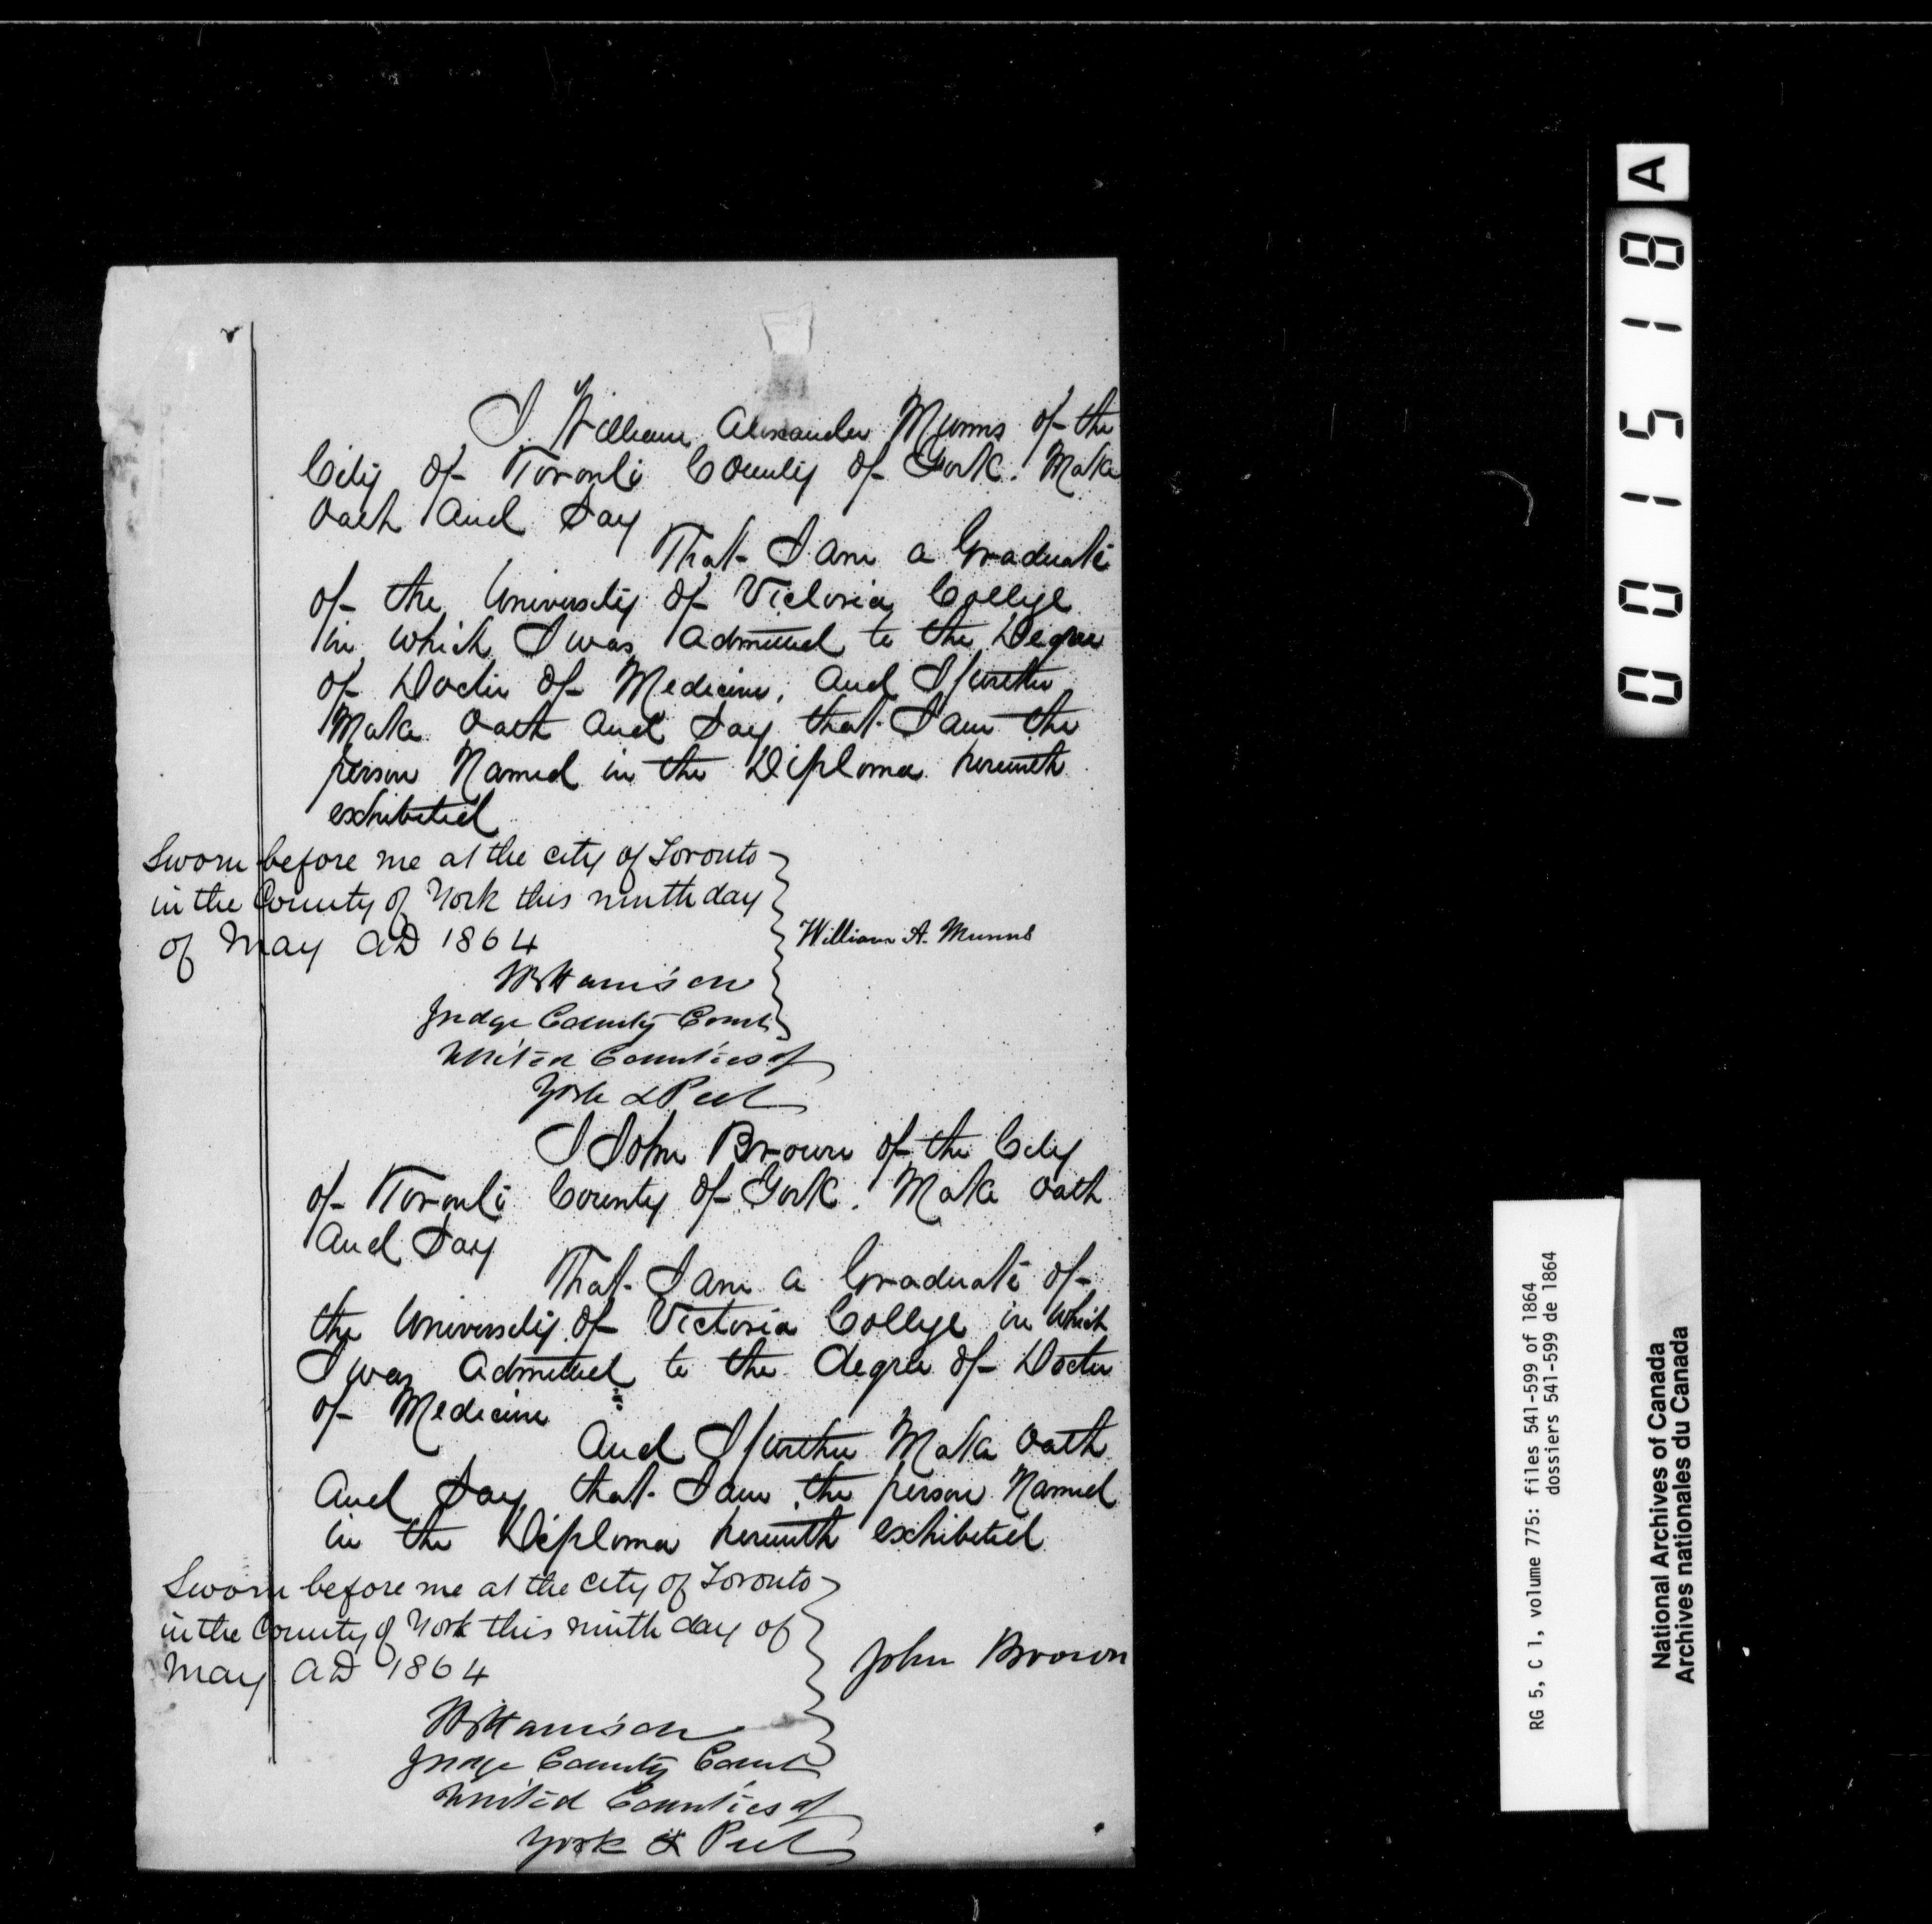 I William Alexander Munns of the
City of Toronto County of York. Make
Oath And Say
That I am a Graduate
of the University of Victoria College
in which I was Admitted to the Degree
of Doctor of Medicine, And I further
Make Oath And Say that I am the
person Named in the Diploma herewith
exhibited
Sworn before me at the city of Toronto
in the County of York this ninth day
of May AD 1864
William A. Munns
Harrison
Judge County Court
United Counties of
York & Peel
I John Brown of the City
of Toronto County of York. Make Oath
And Say
That I am a Graduate of
the University of Victoria College in which
I was Admitted to the degree of Doctor
of Medicine
And I further Make Oath
And Say that I am the person Named
in the Diploma herewith exhibited
Sworn before me at the city of Toronto
in the County of York this ninth day of
May AD 1864
John Brown
Harrison
Judge County Court
United Counties of
York & Peel
001518 A
RG 5, C 1, volume 775: files 541-599 of 1864
dossiers 541-599 de 1864
National Archives of Canada
Archives nationales du Canada